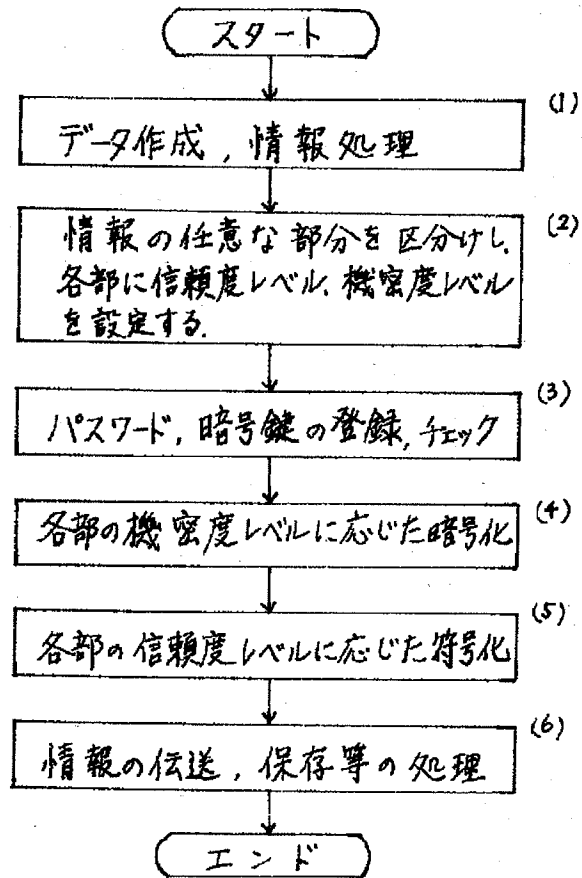 スタート
(1)
データ作成, 情報処理
(2)
情報の任意な部分を区分けし,
各部に信頼度レベル, 機密度レベル
を設定する.
(3)
パスワード, 暗号鍵の登録, チェック
(4)
各部の機密度レベルに応じた暗号化
(5)
各部の信頼度レベルに応じた符号化
(6)
情報の伝送, 保存等の処理
エンド